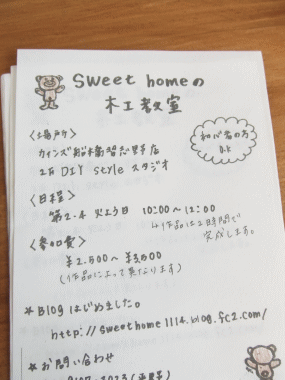 Sweet homeの
木工教室
初心者の方
O.K
<場所>
カインズ船橋習志野店
2F DIY style スタジオ
<日程>
第2.4 火よう日 10:00〜12:00
1作品は2時間で
完成します。
<参加費>
¥2.500〜¥3,500
(作品によって異なります)
★Blogはじめました。
http://sweethome1114.blog.fc2.com/
★お問い合わせ